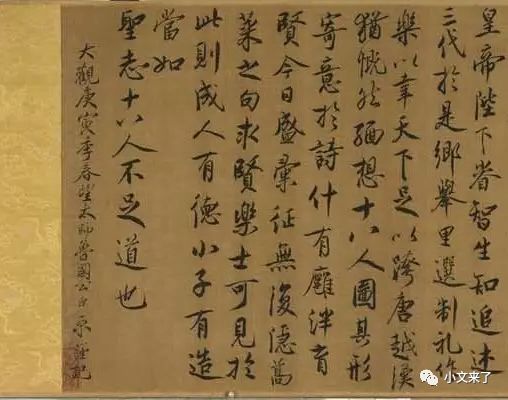 皇帝陛下睿智生知追述
三代於是鄉舉里選制礼作
樂以幸天下足以跨唐越漢
猶慨然緬想十八人圖其形
寄意於詩什有廱泮育
賢今日盛彙征無復隱蒿
萊之句求賢樂士可見於
此則成人有德小子有造
當如
聖志十八人不足道也
大觀庚寅季春望太師魯國公臣京謹記
小文来了